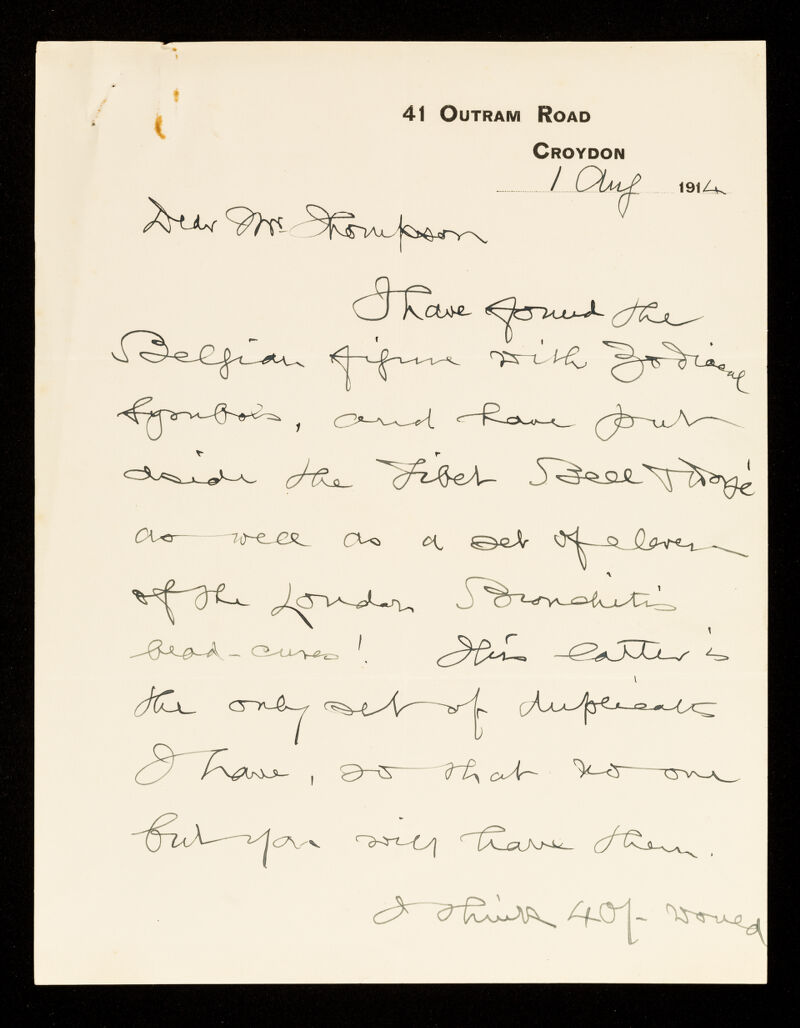 41 OUTRAM ROAD
CROYDON
1 Aug 1914
Dear Mr. Thompson
I have found the
Belgian figure with Zodiacal
symbols, and have put
aside the Tibet Bell & Dorjé
as well as a set of eleven
of the London Bronchitis
bead-cures! This latter is
the only set of duplicates
I have, so that no one
but you will have them.
I think 40/- would